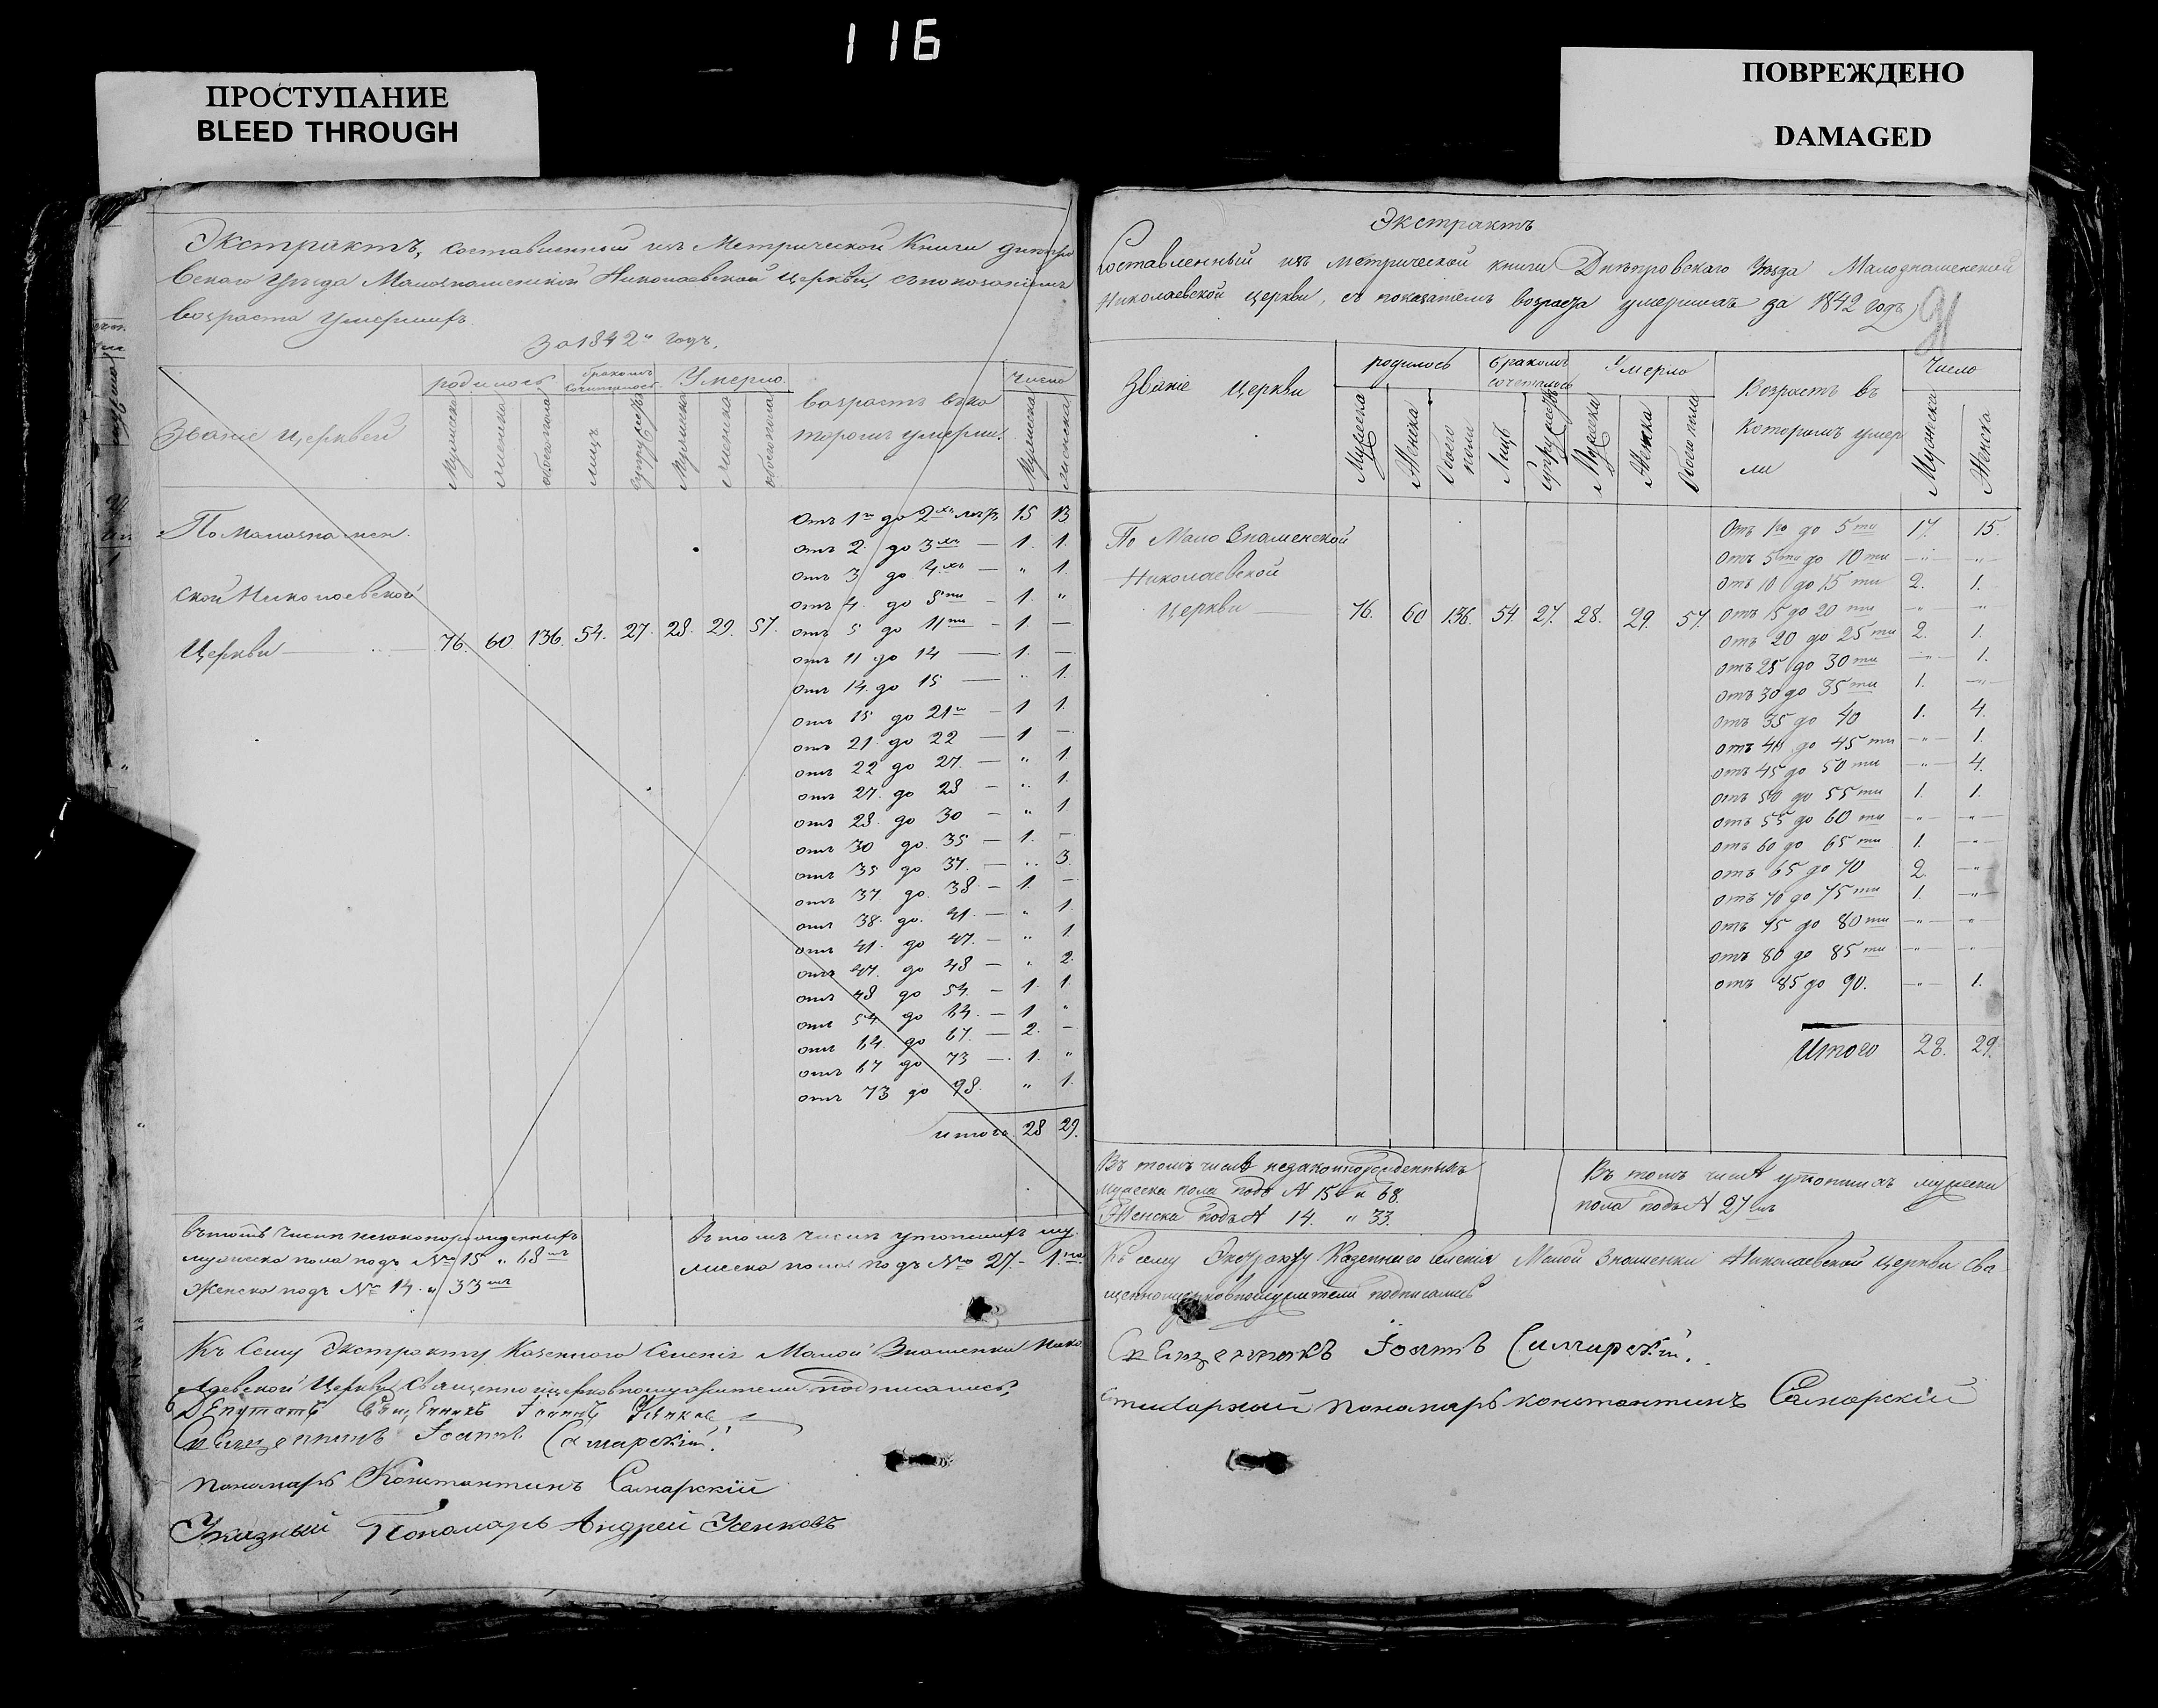 116
ПРОСТУПАНИЕ
BLEED THROUGH
ПОВРЕЖДЕНО
DAMAGED
Экстрактъ, составленный изъ Метрической Книги Днепро
вскаго Уезда Малознаменской Николаевской церкви, съ показаніемъ
возраста умершихъ
За 1842й годъ.
Званіе Церквей
родилось
бракомъ сочиталось
Умерло
возрастъ въ ко
торомъ умерли.
число
Мужеска
женска
обоего пола
лицъ
супружествъ
Мужеска
женска
обоего пола
Мужеска
женска
По Малознамен
ской Николаевской
Церкви 76. 60 136. 54. 27. 28. 29. 57.
Отъ 1го до 2хъ летъ 15 13
отъ 2. до 3хъ — 1. 1.
отъ 3 до 4.хъ — " 1.
отъ 4. до 5ти — 1. "
отъ 5 до 11ти — 1 —
отъ 11 до 14 — 1. —
отъ 14. до 15 — " 1.
отъ 15 до 21го — 1 1.
отъ 21. до 22 — 1 —
отъ 22 до 27. — " 1.
отъ 27. до 28 — " 1.
отъ 28. до 30 — " 1
отъ 30 до. 35 — 1. —
отъ 35 до 37. — " 3.
отъ 37 до. 38. — 1. —
отъ 38. до. 41. — " 1.
отъ 41. до 47. — " 1.
отъ 47. до 48 — " 2.
отъ 48 до 54. — 1. 1.
отъ 54 до 64. — 1 "
отъ 64. до 67. — 2. —
отъ 67 до 73 — 1. "
отъ 73 до 98. " 1.
итого. 28 29.
въ томъ числе незаконорожденныхъ
мужеска пола подъ №о 15 " 68мъ
Женска подъ №о 14. " 33мъ
въ томъ числе утопшихъ му
жеска пола подъ №о 27. — 1.
Къ сему Экстракту Казеннаго Селенія Малой Знаменки Нико
лаевской Церкви священно и церковнослужители подписались,
Депутатъ Священникъ Іоаннъ
Священникъ Іоаннъ Самарскій.
пономарь Константинъ Самарскій
Указный Пономарь Андрей Усенковъ
Экстрактъ
Составленный изъ метрической книги Днѣпровскаго Уѣзда Малознаменской
Николаевской церкви, съ показателемъ возраста умершихъ за 1842 годъ
91
Званіе Церкви
родилось
бракомъ сочеталось
Умерло
Возрастъ въ
которомъ умер
ли
Число
Мужеска
Женска
Обоего пола
Лицъ
Супружествъ
Мужеска
Женска
Обоего пола
Мужеска
Женска
По Мало Знаменской
Николаевской
Церкви — 76. 60 136. 54. 27. 28. 29. 57.
Отъ 1го до 5ти 17. 15.
Отъ 5ти до 10ти —"— —"—
Отъ 10 до 15ти 2. 1.
Отъ 15 до 20ти —"— —"—
отъ 20 до 25ти 2. 1.
отъ 25 до 30ти —"— 1.
отъ 30 до 35ти 1. —"—
отъ 35 до 40 1. 4.
отъ 40 до 45ти —"— 1.
отъ 45 до 50ти —"— 4.
отъ 50 до 55ти 1. 1.
отъ 55 до 60ти —"— —"—
отъ 60 до 65ти 1. —"—
отъ 65 до 70 2. —"—
отъ 70 до 75ти 1. —"—
отъ 75 до 80ти —"— —"—
отъ 80 до 85ти —"— —"—
отъ 85 до 90. —"— 1.
Итого 28. 29.
Въ томъ числѣ незаконнорожденныхъ
Мужеска пола подъ № 15 и 68.
Женска подъ № 14. " 33.
Въ томъ числѣ утопшихъ мужеска
пола подъ № 27мъ
Къ сему Экстракту Казеннаго селенія Малой Знаменки Николаевской церкви свя-
щенноцерковнослужители подписались
Священникъ Іоаннъ Самарскій.
пономарь Константинъ Самарскій